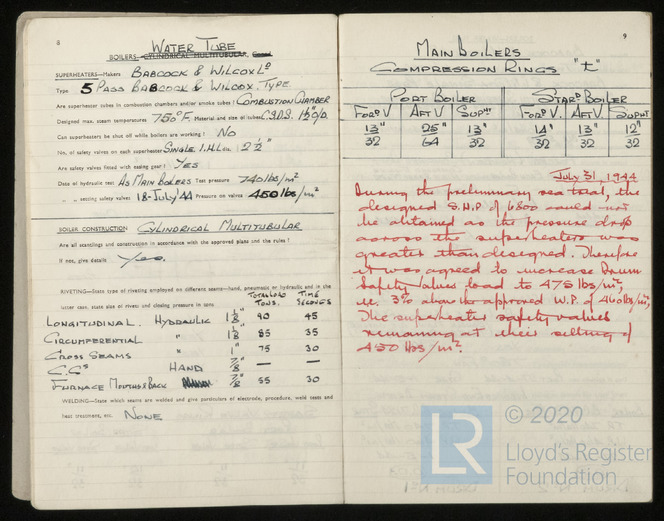 8
WATER TUBE
BOILERS: CYLINDRICAL MULTITUBULAR,
SUPERHEATERS—Makers BABCOCK & WILCOX Lᴰ
Type 5 PASS BABCOCK & WILCOX. TYPE.
Are superheater tubes in combustion chambers and/or smoke tubes? COMBUSTION CHAMBER
Designed max. steam temperatures 750°F. Material and size of tubes C.S.D.S. 1½"O/D.
Can superheaters be shut off while boilers are working? NO
No. of safety valves on each superheater SINGLE I.H.L. dia. 2½"
Are safety valves fitted with easing gear? YES
Date of hydraulic test AS MAIN BOILERS Test pressure 740 lbs/in²
„ „ setting safety valves 18-JULY'44 Pressure on valves 450 lbs/in²
BOILER CONSTRUCTION CYLINDRICAL MULTITUBULAR
Are all scantlings and construction in accordance with the approved plans and the rules?
If not, give details Yes.
RIVETING—State type of riveting employed on different seams—hand, pneumatic or hydraulic and in the
latter case, state size of rivets and closing pressure in tons
TOTAL LOAD TONS. TIME SECONDS
LONGITUDINAL. HYDRAULIC 1⅛" 90 45
CIRCUMFERENTIAL " 1⅛" 85 35
CROSS SEAMS " 1" 75 30
C.Cˢ HAND ⅞" — —
FURNACE MOUTHS & BACK ⅞" 55 30
WELDING—State which seams are welded and give particulars of electrode, procedure, weld tests and
heat treatment, etc. NONE
9
MAIN BOILERS
COMPRESSION RINGS "t"
PORT BOILER STARᴰ BOILER
FORᴰ V AFT V SUPᴴᵀ FORᴰ V. AFT V. SUPHT
13"/32 25"/64 13"/32 14"/32 13"/32 12"/32
July 31, 1944
During the preliminary sea trial, the
designed S.H.P of 6800 could not
be obtained as the pressure drop
across the superheaters was
greater than designed. Therefore
it was agreed to increase Drum
Safety Valves load to 475 lbs/in²,
i.e. 3% above the approved W.P. of 460 lbs/in²,
The superheater safety valves
remaining at their setting of
450 lbs/in².
LR
© 2020
Lloyd's Register
Foundation